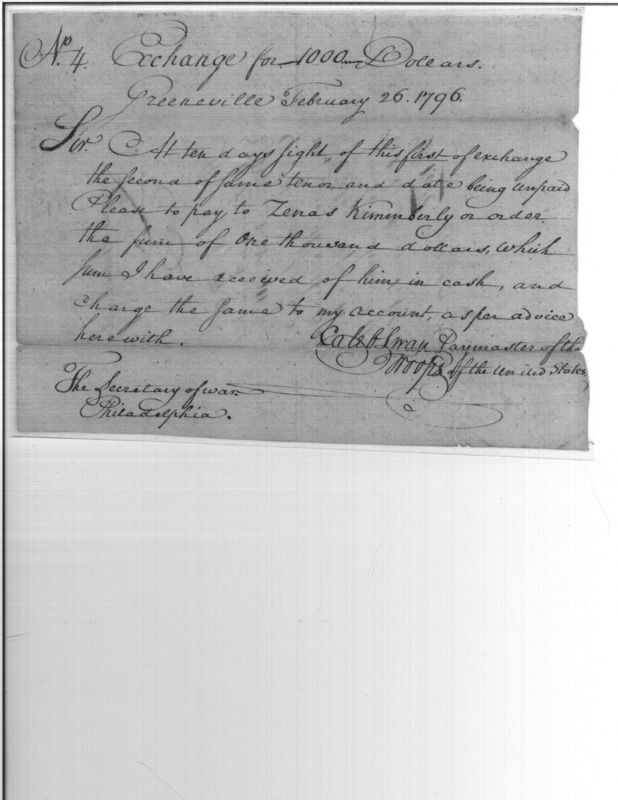 No. 4. Exchange for 1000 Dollars.
Greeneville February 26. 1796.
Sir. At ten days sight of this first of exchange
the second of same tenor and date being unpaid
Please to pay to Zenas Kimmberly or order
the sum of One thousand dollars, which
sum I have received of him in cash, and
charge the same to my account, as per advice
here with.
Caleb Swan Paymaster of th
Troops of the United States
The Secretary of war
Philadelphia.